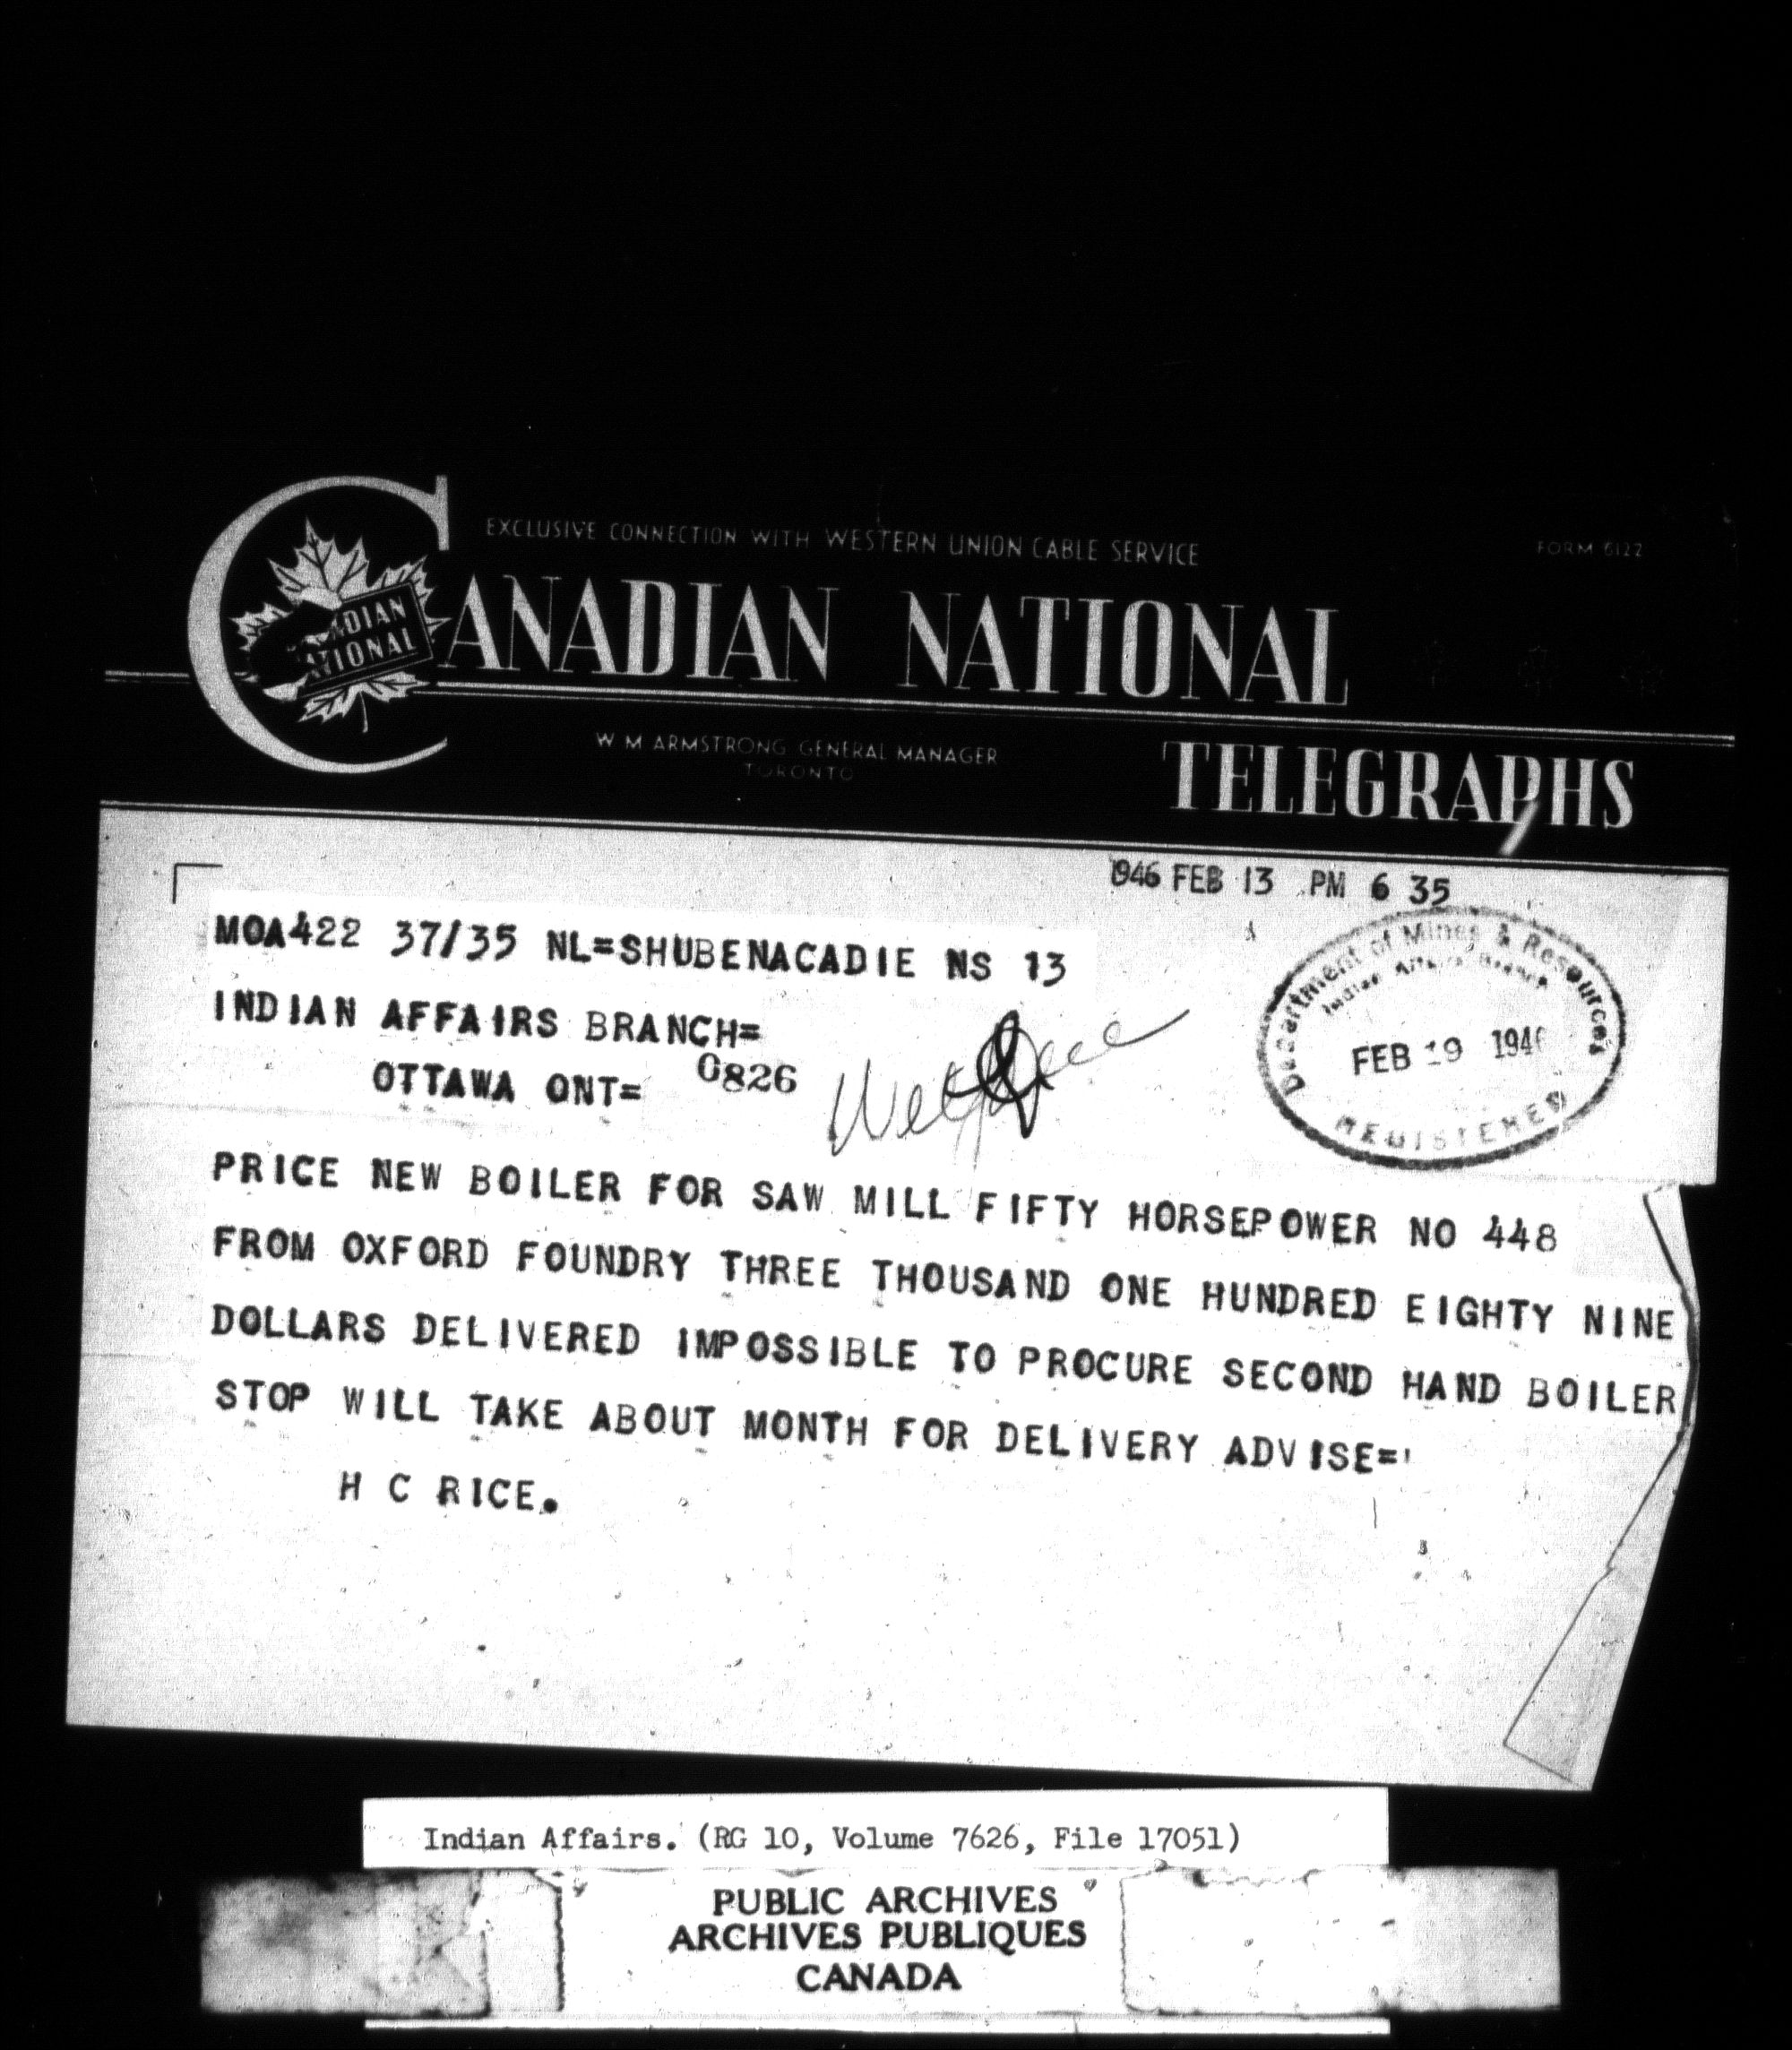 EXCLUSIVE CONNECTION WITH WESTERN UNION CABLE SERVICE
FORM 6122
CANADIAN NATIONAL
W M ARMSTRONG GENERAL MANAGER
TORONTO
TELEGRAPHS
946 FEB 13 PM 6 35
MOA422 37/35 NL=SHUBENACADIE NS 13
INDIAN AFFAIRS BRANCH=
OTTAWA ONT= 0826
Department of Mines & Resources
Indian Affairs Branch
FEB 19 1946
REGISTERED
PRICE NEW BOILER FOR SAW MILL FIFTY HORSEPOWER NO 448
FROM OXFORD FOUNDRY THREE THOUSAND ONE HUNDRED EIGHTY NINE
DOLLARS DELIVERED IMPOSSIBLE TO PROCURE SECOND HAND BOILER
STOP WILL TAKE ABOUT MONTH FOR DELIVERY ADVISE=
H C RICE.
Indian Affairs. (RG 10, Volume 7626, File 17051)
PUBLIC ARCHIVES
ARCHIVES PUBLIQUES
CANADA